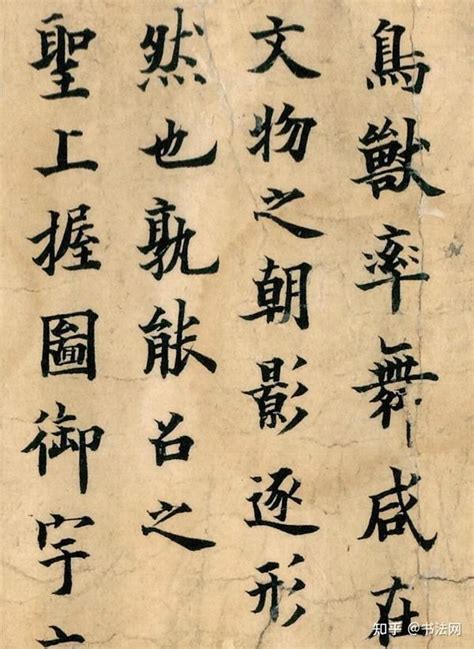 鳥獸率舞咸在
文物之朝影逐形
然也孰能名之
聖上握圖御宇
知乎 @书法网